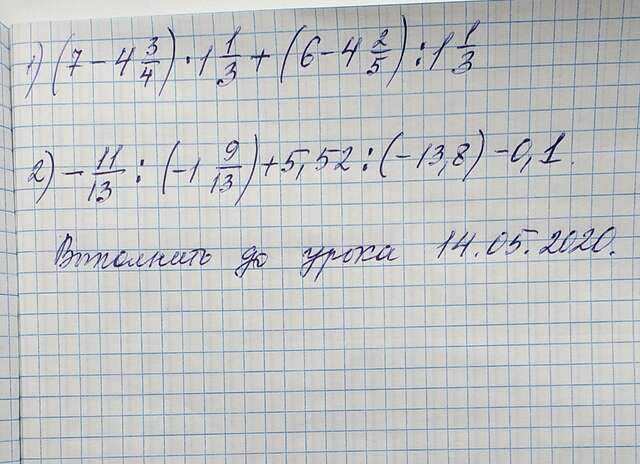 1) (7 - 4 3/4) · 1 1/3 + (6 - 4 2/5) : 1 1/3
2) - 11/13 : (-1 9/13) + 5,52 : (-13,8) - 0,1.
Выполнить до урока 14.05.2020.